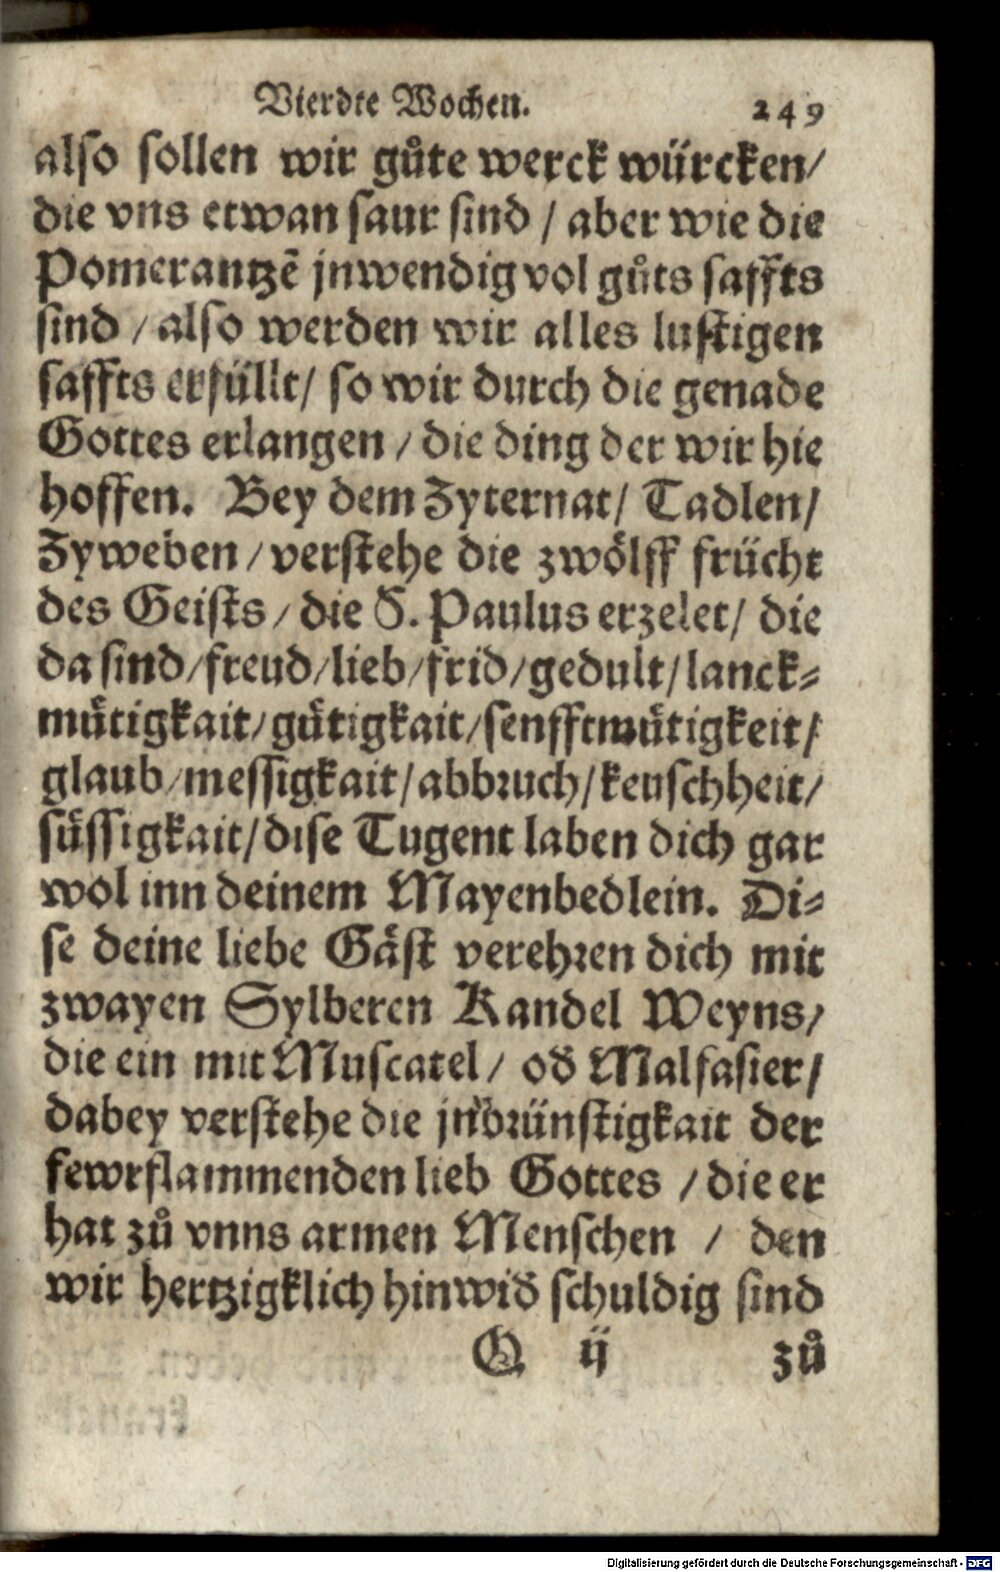 Vierdte Wochen. 249
also sollen wir gůte werck würcken/
die vns etwan saur sind / aber wie die
Pomerantzẽ jnwendig vol gůts saffts
sind / also werden wir alles lustigen
saffts erfüllt/ so wir durch die genade
Gottes erlangen / die ding der wir hie
hoffen. Bey dem Zyternat/ Tadlen/
Zyweben / verstehe die zwölff frücht
des Geists / die S. Paulus erzelet/ die
da sind/freud/lieb/frid/gedult/lanck⸗
mütigkait/gütigkait/senfftmütigkeit/
glaub/messigkait/abbruch/keuschheit/
süssigkait/dise Tugent laben dich gar
wol inn deinem Mayenbedlein. Di⸗
se deine liebe Gäst verehren dich mit
zwayen Sylberen Kandel Weyns/
die ein mit Muscatel / od Malfasier/
dabey verstehe die jnbrünstigkait der
fewrflammenden lieb Gottes / die er
hat zů vnns armen Menschen / den
wir hertzigklich hinwid schuldig sind
Q ij zů
Digitalisierung gefördert durch die Deutsche Forschungsgemeinschaft - DFG